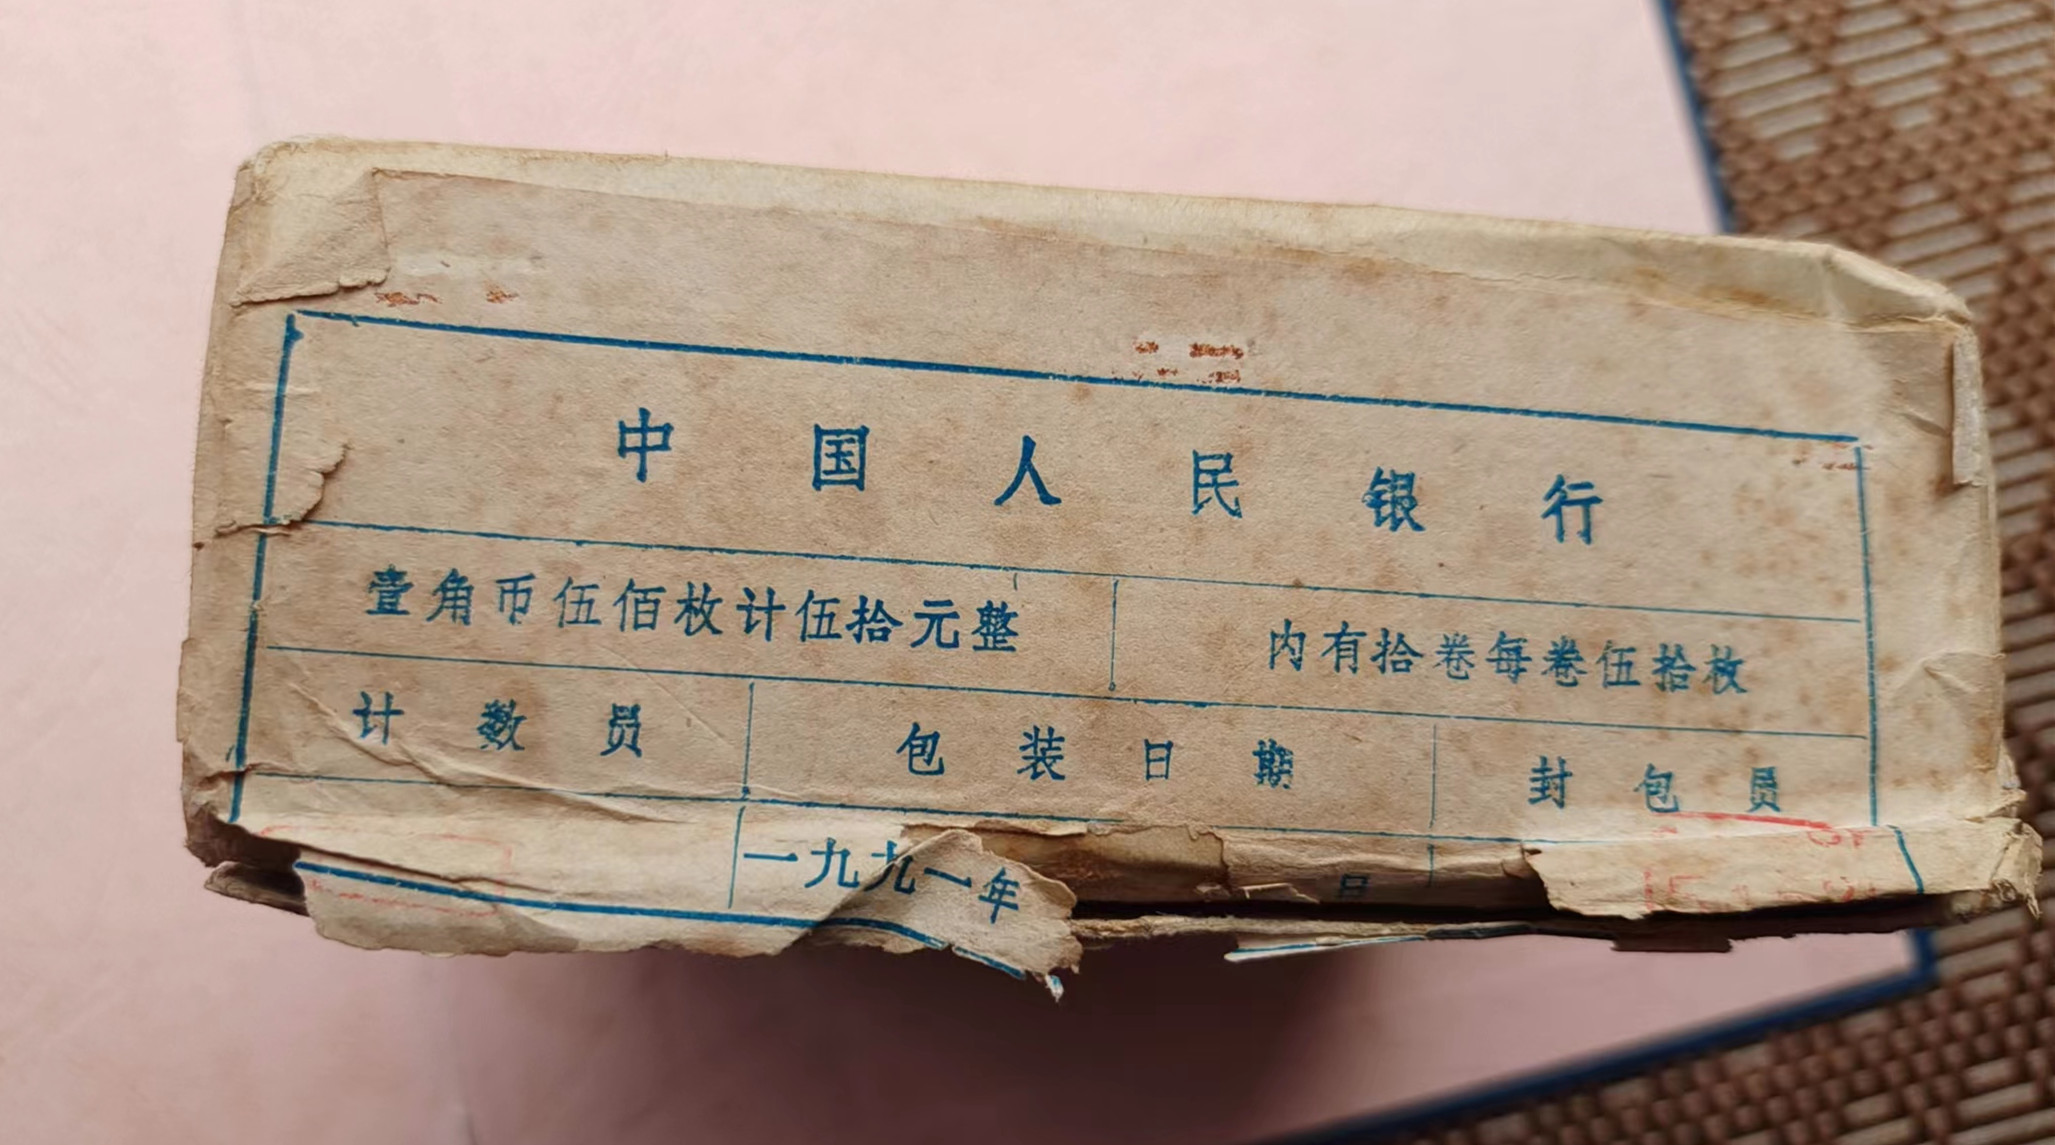 中国人民银行
壹角币伍佰枚计伍拾元整 内有拾卷每卷伍拾枚
计数员 包装日期 封包员
一九九一年 日